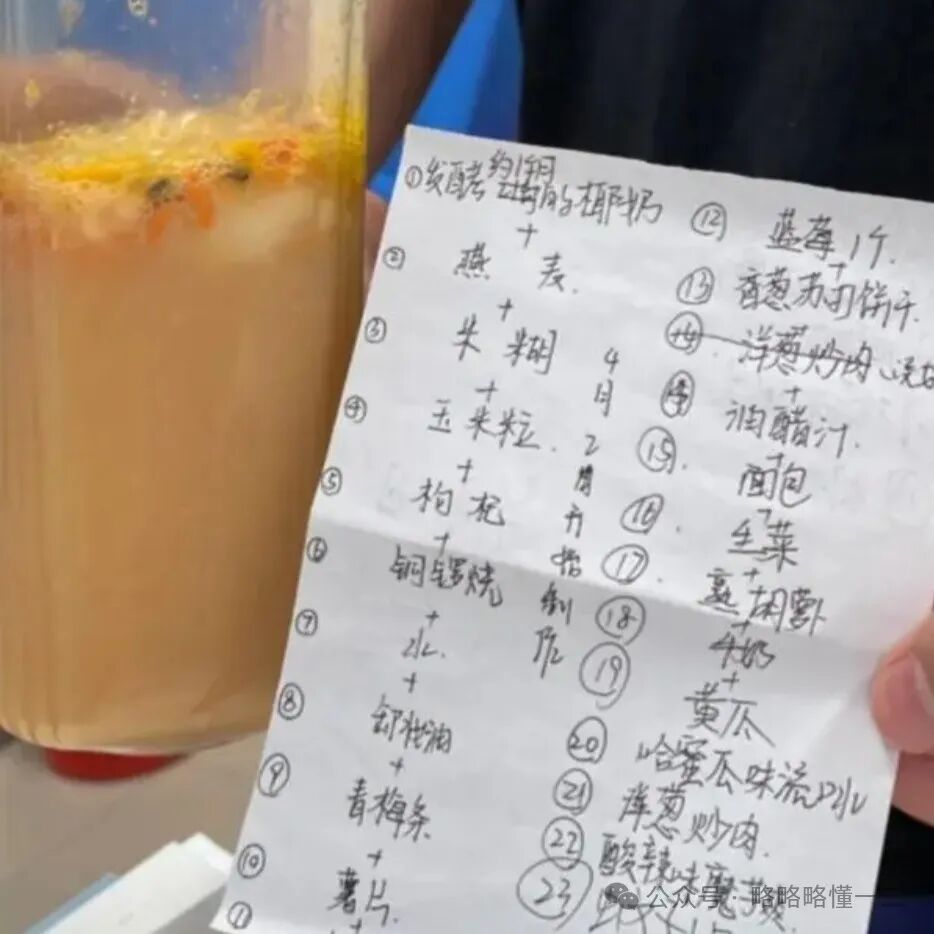 ① 发酵约1周的椰奶
+
② 燕麦
+
③ 米糊
+
④ 玉米粒
+
⑤ 枸杞
+
⑥ 铜锣烧
+
⑦ 水
+
⑧ 卸妆油
+
⑨ 青梅条
+
⑩ 薯片
+
⑪
4月2号开始制作
⑫ 蓝莓1个
+
⑬ 香葱苏打饼干
洋葱炒肉
+
⑭ 油醋汁
+
⑮ 面包
⑯ 生菜
+
⑰ 熟胡萝卜
+
⑱ 牛奶
+
⑲ 黄瓜
⑳ 哈蜜瓜味流口水
21 洋葱炒肉
22 酸辣味魔芋爽
23
公众号·略略略懂一